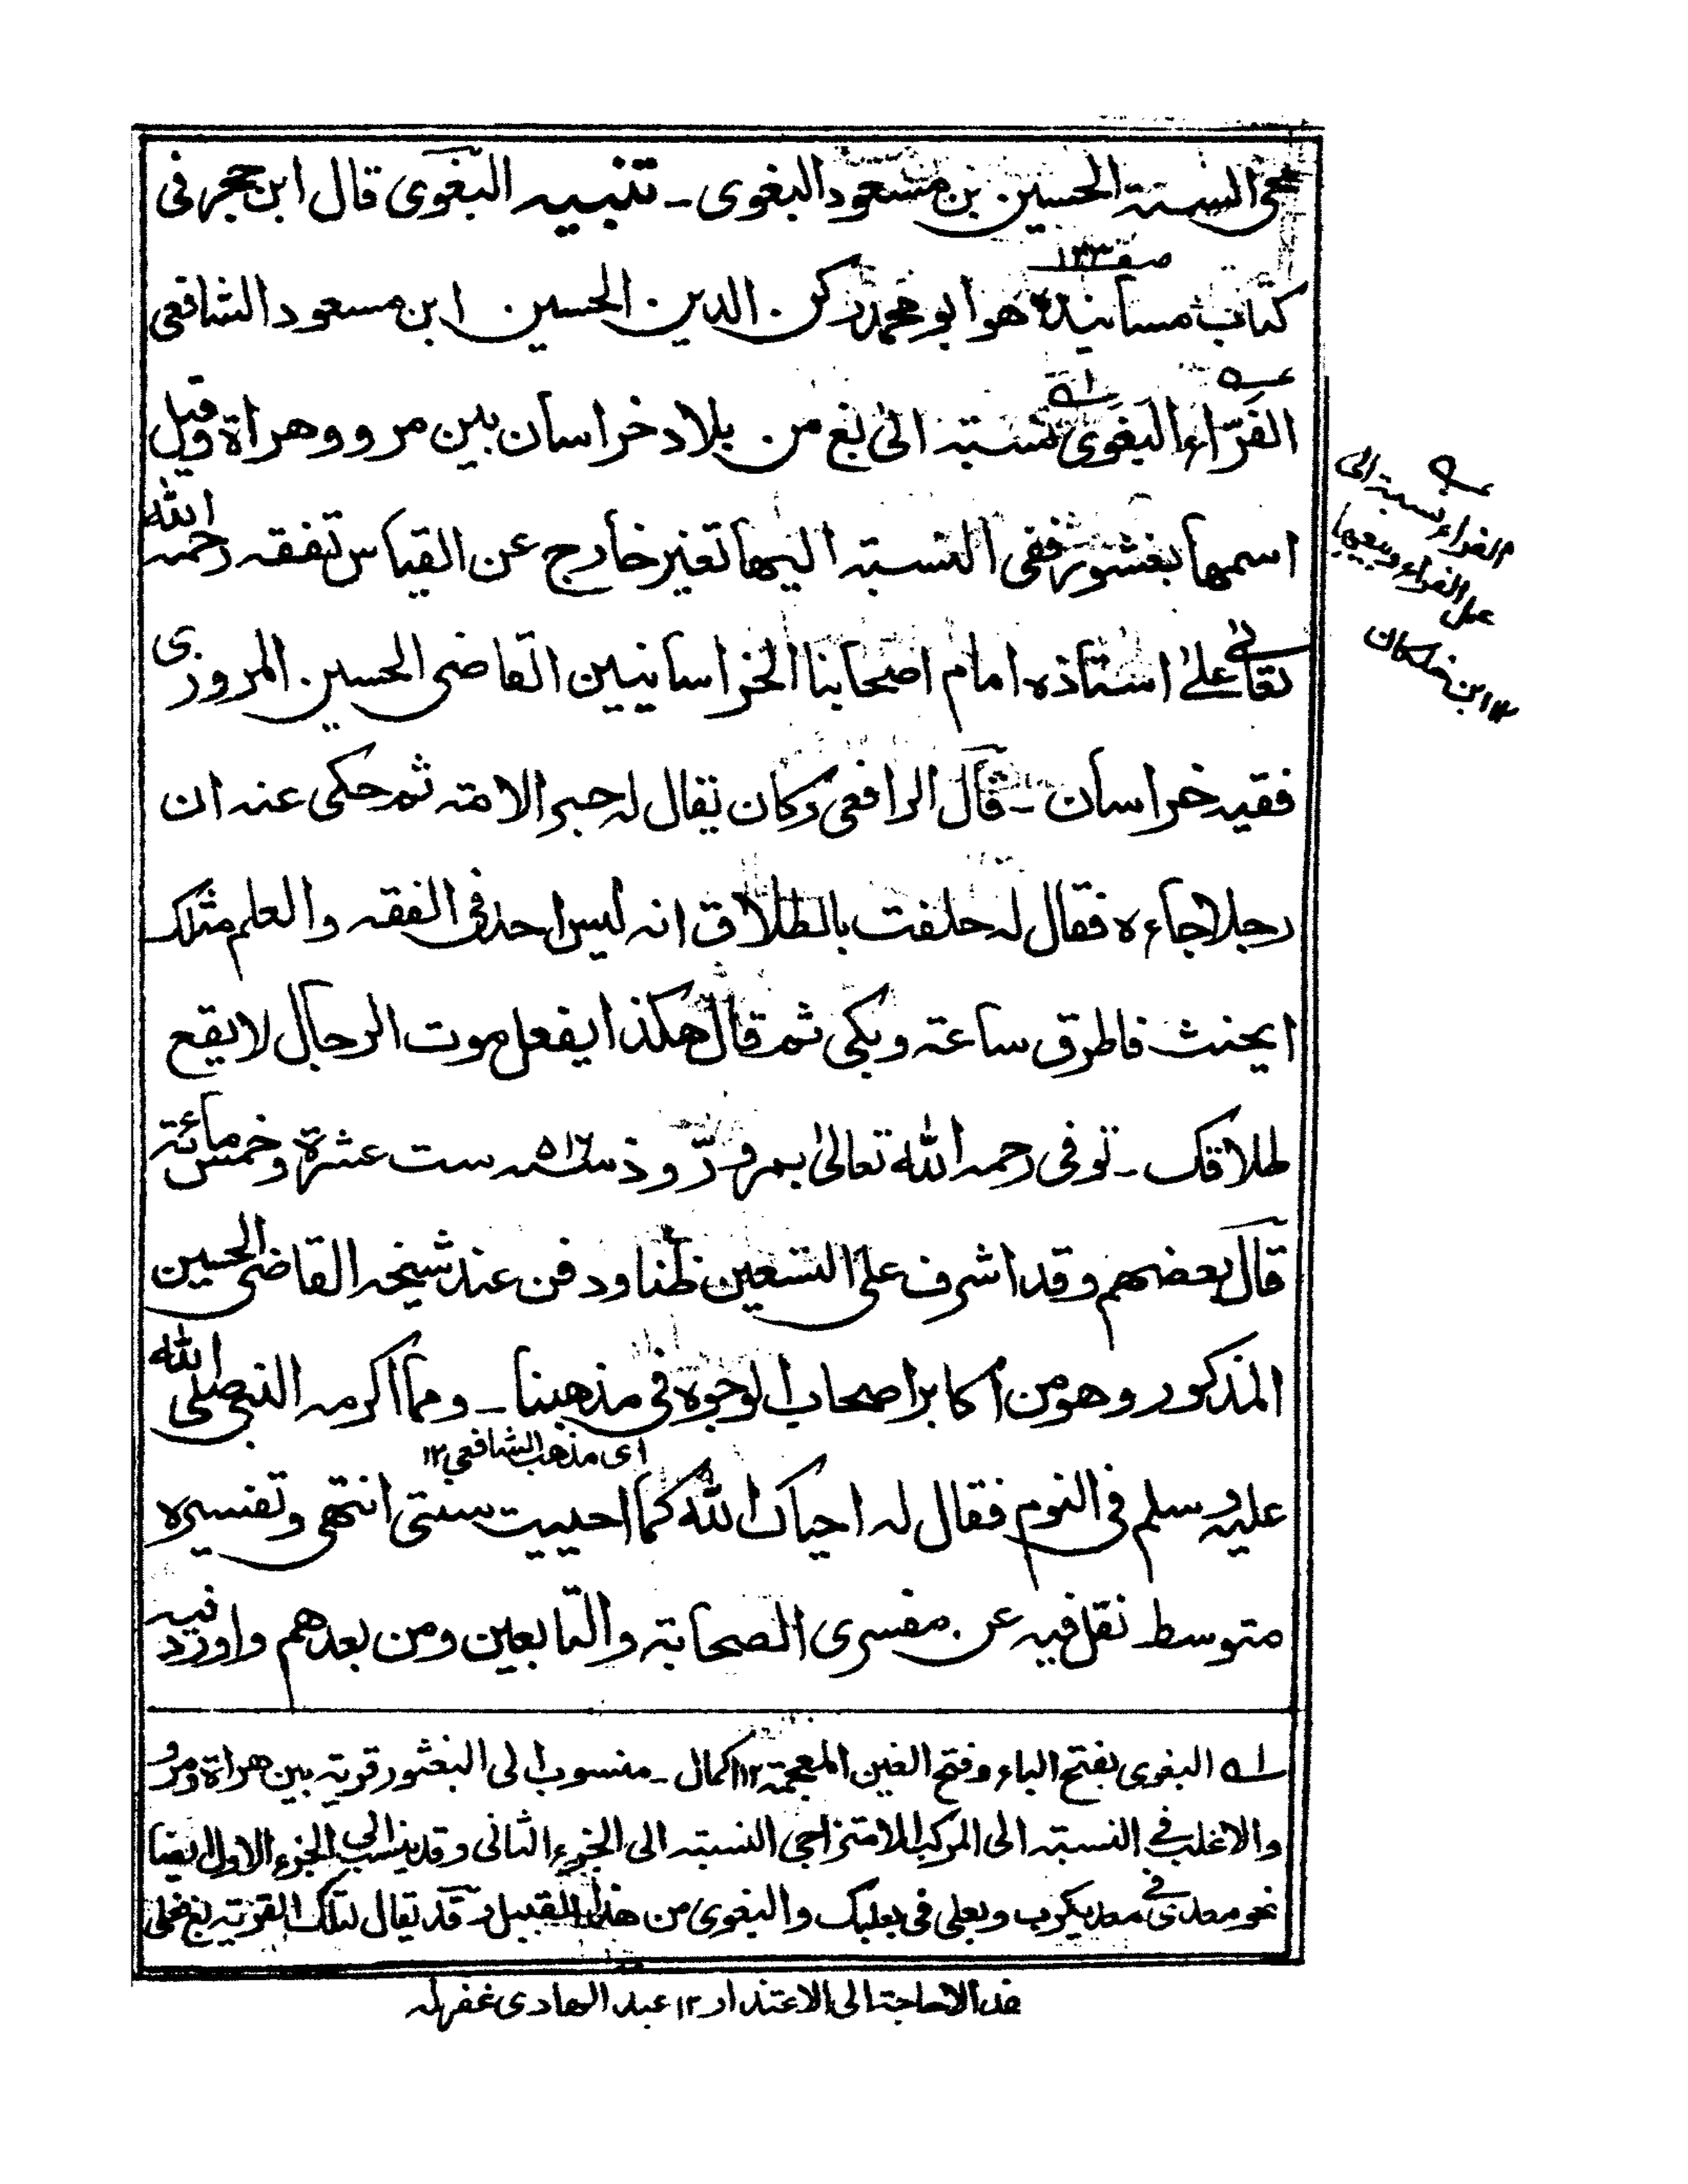 محی السنة الحسین بن مسعود البغوی ـ تنبیه البغوی قال ابن حجر فی
صفـ ۱۳۳
کتاب مسانیده هو ابو محمد رکن الدین الحسین ابن مسعود الشافعی
الفَرّاء البغوی نسبته الیٰ بغ من بلاد خراسان بین مرو وهراة وقیل
اسمها بغشور ففی النسبته الیها تغیر خارج عن القیاس تفقه رحمه الله
تعالیٰ علیٰ استاذه امام اصحابنا الخراسانیین القاضی الحسین المروزی
فقیه خراسان ـ قال الرافعی وکان یقال له حبر الامته ثم حکی عنه ان
رجلا جاءه فقال له حلفت بالطلاق انه لیس احد فی الفقه والعلم مثلک
ایحنث فاطرق ساعته وبکی ثم قال هکذا یفعل موت الرجال لا یقع
طلاقک ـ توفی رحمه الله تعالیٰ بمرو رّوذ سنه ۵۱۶ ست عشرة وخمس مائة
قال بعضهم وقد اشرف علی التسعین ظنا ودفن عند شیخه القاضی الحسین
المذکور وهو من اکابر اصحاب الوجوه فی مذهبنا ـ ومما اکرمه النبی صلی الله
ای مذهب الشافعی ۱۲
علیه وسلم فی النوم فقال له احیاک الله کما احییت سنتی انتهی وتفسیره
متوسط نقل فیه عن مفسری الصحابته والتابعین ومن بعدهم واورد فیه
الفراء نسبة الی
عمل الفراء وبیعها
۱۲ ابن خلکان
لـه البغوی بفتح الباء وفتح الغین المعجمة ۱۲ اکمال ـ منسوب الی البغشور قریته بین هراة ومرو
والاغلب فی النسبته الی المرکب الامتزاجی النسبته الی الجزء الثانی وقد ینسب الی الجزء الاول ایضا
نحو معدی فی معدیکرب وبعلی فی بعلبک والبغوی من هذا القبیل وقد یقال لتلک القریته بغ فعلی
هذا لا حاجة الی الاعتذار ۱۲ عبد الهادی غفرله